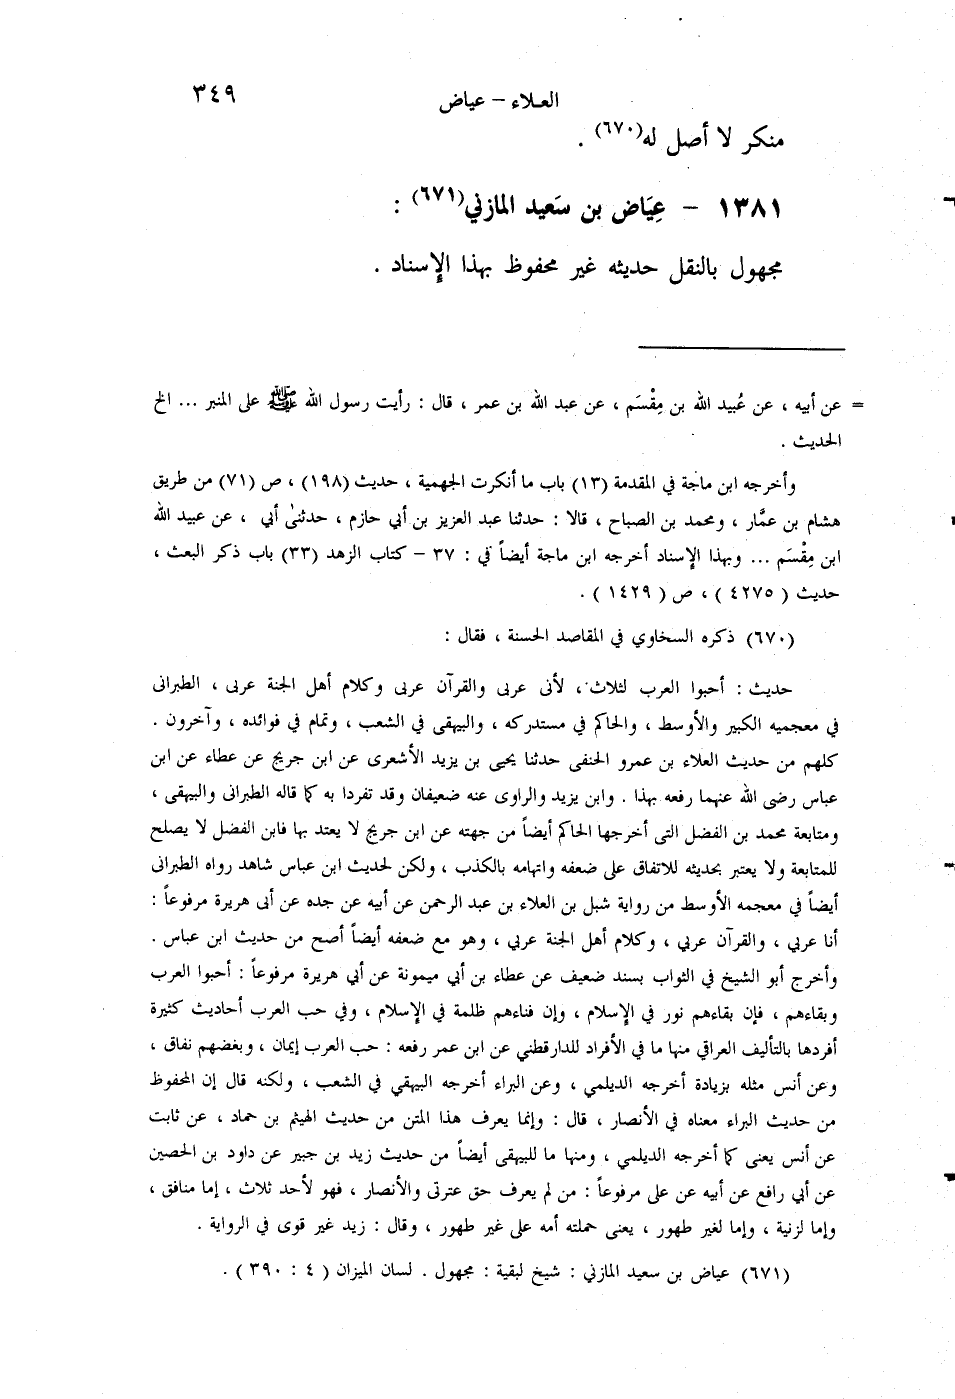 العلاء – عياض ٣٤٩
منكر لا أصل له(٦٧٠) .
١٣٨١ – عِيَاض بن سَعيد المازني(٦٧١) :
مجهول بالنقل حديثه غير محفوظ بهذا الإسناد .
= عن أبيه ، عن عُبيد الله بن مِقْسَم ، عن عبد الله بن عمر ، قال : رأيت رسول الله ﷺ على المنبر ... الخ
الحديث .
وأخرجه ابن ماجة في المقدمة (١٣) باب ما أنكرت الجهمية ، حديث (١٩٨) ، ص (٧١) من طريق
هشام بن عمَّار ، ومحمد بن الصباح ، قالا : حدثنا عبد العزيز بن أبي حازم ، حدثنى أبي ، عن عبيد الله
ابن مِقْسَم ... وبهذا الإسناد أخرجه ابن ماجة أيضاً في : ٣٧ – كتاب الزهد (٣٣) باب ذكر البعث ،
حديث ( ٤٢٧٥ ) ، ص ( ١٤٢٩ ) .
(٦٧٠) ذكره السخاوي في المقاصد الحسنة ، فقال :
حديث : أحبوا العرب لثلاث ، لأنى عربى والقرآن عربى وكلام أهل الجنة عربى ، الطبرانى
في معجميه الكبير والأوسط ، والحاكم في مستدركه ، والبيهقى في الشعب ، وتمام في فوائده ، وآخرون .
كلهم من حديث العلاء بن عمرو الحنفى حدثنا يحيى بن يزيد الأشعرى عن ابن جريج عن عطاء عن ابن
عباس رضى الله عنهما رفعه بهذا . وابن يزيد والراوى عنه ضعيفان وقد تفردا به كما قاله الطبرانى والبيهقى ،
ومتابعة محمد بن الفضل التى أخرجها الحاكم أيضاً من جهته عن ابن جريج لا يعتد بها فابن الفضل لا يصلح
للمتابعة ولا يعتبر بحديثه للاتفاق على ضعفه واتهامه بالكذب ، ولكن لحديث ابن عباس شاهد رواه الطبرانى
أيضاً في معجمه الأوسط من رواية شبل بن العلاء بن عبد الرحمن عن أبيه عن جده عن أبى هريرة مرفوعاً :
أنا عربي ، والقرآن عربي ، وكلام أهل الجنة عربي ، وهو مع ضعفه أيضاً أصح من حديث ابن عباس .
وأخرج أبو الشيخ في الثواب بسند ضعيف عن عطاء بن أبي ميمونة عن أبي هريرة مرفوعاً : أحبوا العرب
وبقاءهم ، فإن بقاءهم نور في الإسلام ، وإن فناءهم ظلمة في الإسلام ، وفي حب العرب أحاديث كثيرة
أفردها بالتأليف العراقي منها ما في الأفراد للدارقطني عن ابن عمر رفعه : حب العرب إيمان ، وبغضهم نفاق ،
وعن أنس مثله بزيادة أخرجه الديلمي ، وعن البراء أخرجه البيهقي في الشعب ، ولكنه قال إن المحفوظ
من حديث البراء معناه في الأنصار ، قال : وإنما يعرف هذا المتن من حديث الهيثم بن حماد ، عن ثابت
عن أنس يعنى كما أخرجه الديلمي ، ومنها ما للبيهقى أيضاً من حديث زيد بن جبير عن داود بن الحصين
عن أبي رافع عن أبيه عن على مرفوعاً : من لم يعرف حق عترتى والأنصار ، فهو لأحد ثلاث ، إما منافق ،
وإما لزنية ، وإما لغير طهور ، يعنى حملته أمه على غير طهور ، وقال : زيد غير قوى في الرواية .
(٦٧١) عياض بن سعيد المازني : شيخ لبقية : مجهول . لسان الميزان ( ٤ : ٣٩٠ ) .